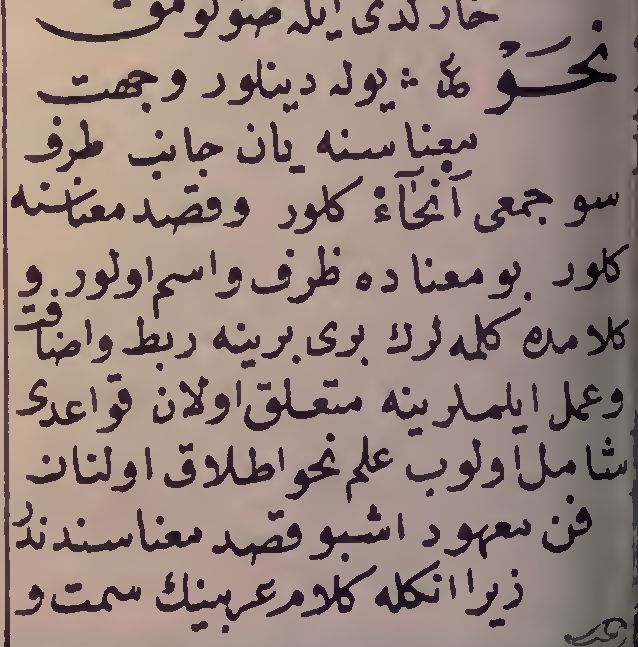 خارلدى ايله صولومق
نَحْو ع م : يوله دينلور وجهت
معناسنه يان جانب طرف
سو جمعى اَنْحَآءْ كلور وقصد معناسنه
كلور بو معناده ظرف واسم اولور و
كلامده كلمه لرك برى برينه ربط واضافت
وعمل ايلملرينه متعلق اولان قواعدى
شامل اولوب علم نحو اطلاق اولنان
فن معهود اشبو قصد معناسندندر
زيرا انكله كلام عربينك سمت و